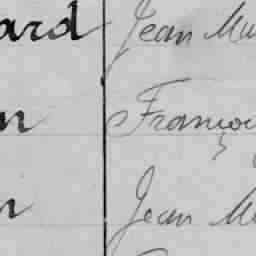 ard Jean Mu
n Françoi
n Jean M